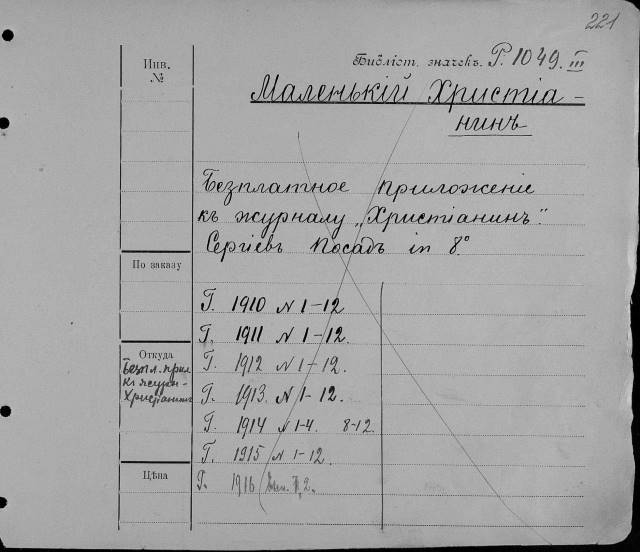 221
Инв.
№
Библіот. значекъ. Р. 1049. III
Маленькій Христіа-
нинъ
Безплатное приложеніе
къ журналу „Христіанинъ".
Сергіевъ Посадъ in 8°
По заказу
Г. 1910 N 1-12
Г. 1911 N 1-12.
Г. 1912 N 1-12.
Г. 1913. N 1-12.
Г. 1914 N 1-4. 8-12.
Г. 1915 N 1-12.
Г. 1916 1, 2.
Откуда
Безпл. прил
къ журн-
Христіанинъ
Цѣна